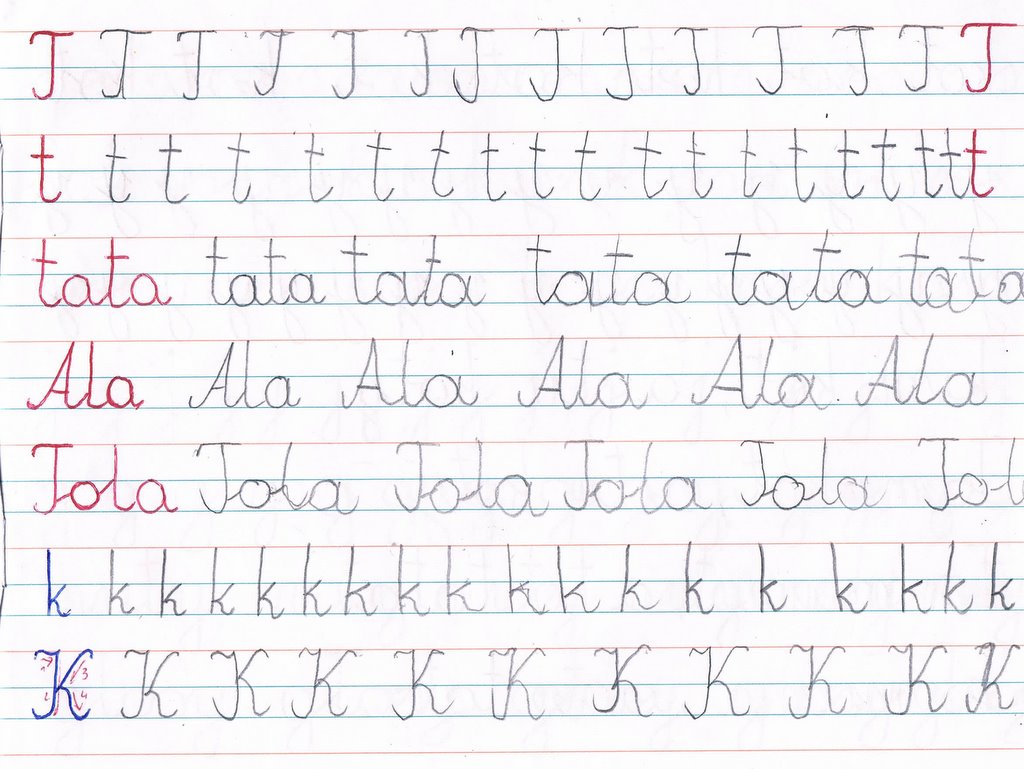 T T T T T T T T T T T T T T
t t t t t t t t t t t t t t t t t t t
tata tata tata tata tata tata
Ala Ala Ala Ala Ala Ala
Tola Tola Tola Tola Tola Tol
k k k k k k k k k k k k k k k k k k
K K K K K K K K K K K